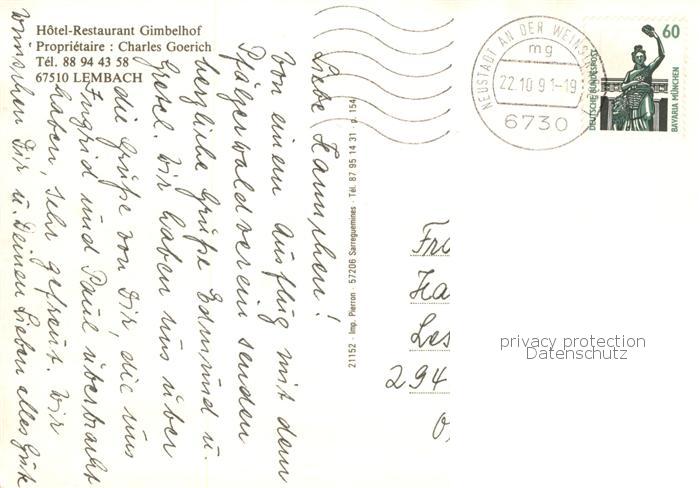 Hôtel-Restaurant Gimbelhof
Propriétaire : Charles Goerich
Tél. 88 94 43 58
67510 LEMBACH
Liebe Hannchen!
Von einem Ausflug mit dem
Pfälzerwaldverein senden
herzliche Grüße Edmund u.
Gretel. Wir haben uns über
die Grüße von Dir, die uns
Ingrid und Paul überbracht
haben, sehr gefreut. Wir
wünschen Dir u. Deinen Lieben alles Gute
21152 - Imp. Pierron - 57206 Sarreguemines - Tél. 87 95 14 31 - p. 154
NEUSTADT AN DER WEINSTR
mg
22.10.91-19
6730
60
DEUTSCHE BUNDESPOST
BAVARIA MÜNCHEN
294
privacy protection
Datenschutz